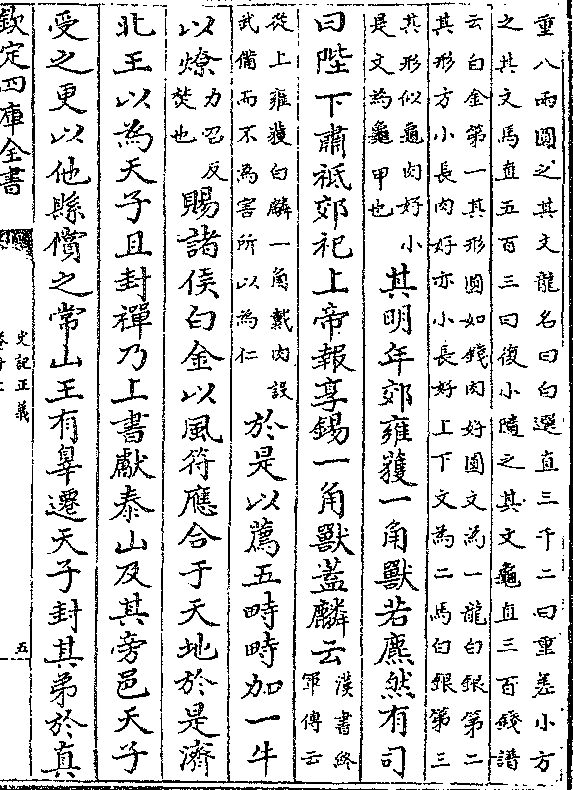 重八兩圓之其文龍名曰白選直三千二曰重差小方
之其文馬直五百三曰復小隋之其文龜直三百錢譜
云白金第一其形圓如錢肉好圓文為一龍白銀第二
其形方小長肉好亦小長好上下文為二馬白銀第三
其形似龜肉好小
是文為龜甲也
其明年郊雍獲一角獸若麃然有司
曰陛下肅祗郊祀上帝報享錫一角獸蓋麟云
漢書終
軍傳云
從上雍獲白麟一角戴肉設
武備而不為害所以為仁
於是以薦五畤畤加一牛
以燎
力召反
焚也
賜諸侯白金以風符應合于天地於是濟
北王以為天子且封禪乃上書獻泰山及其旁邑天子
受之更以他縣償之常山王有辠遷天子封其弟於真
欽定四庫全書
史記正義
五